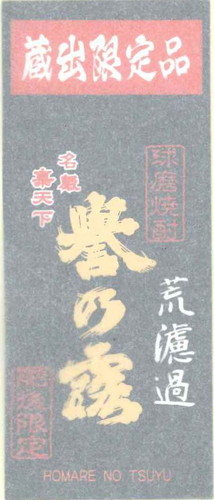 蔵出限定品
球磨焼酎
名醸
嘉天下
誉の露
荒濾過
肥後限定
HOMARE NO TSUYU